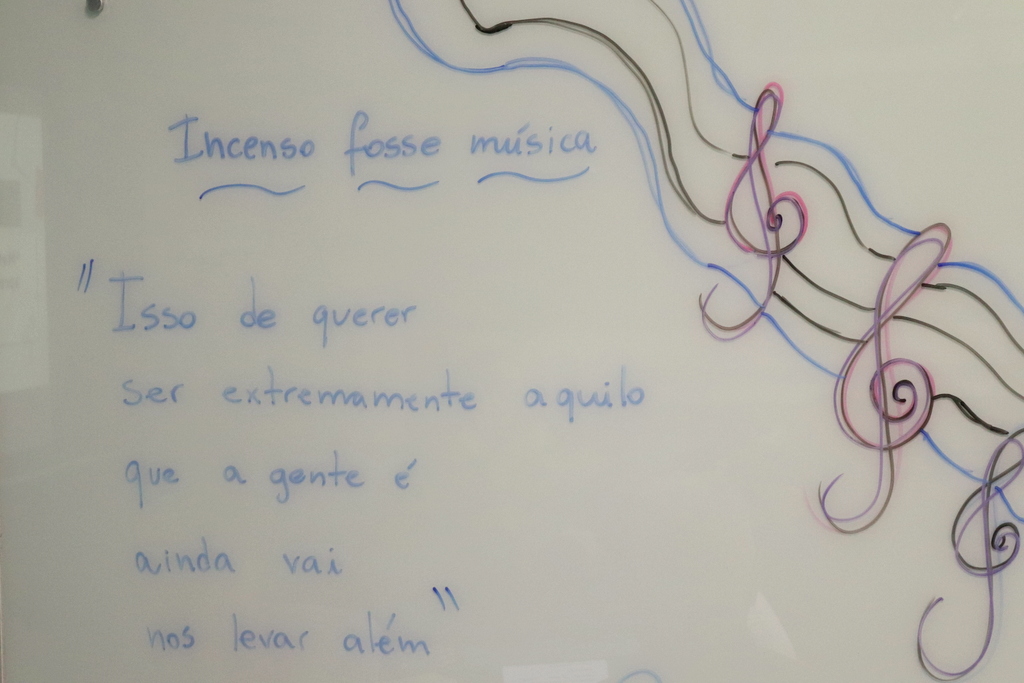 Incenso fosse música
"Isso de querer
ser extremamente aquilo
que a gente é
ainda vai
nos levar além"